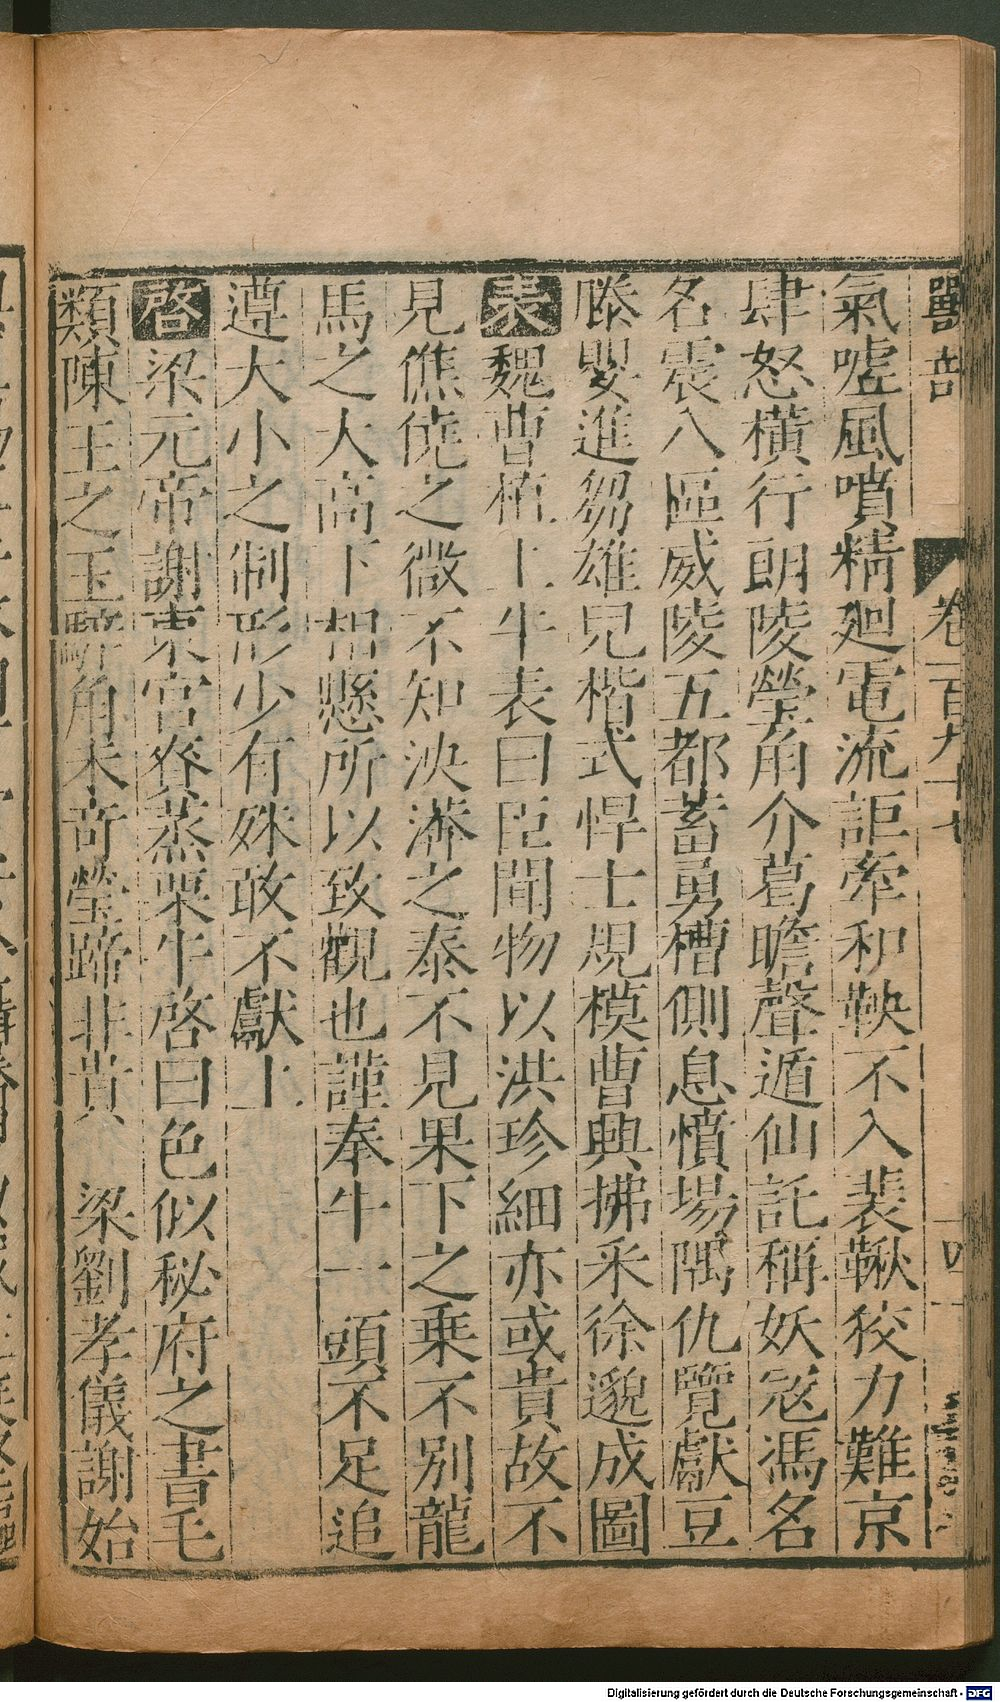 獸部 卷一百九十七 四
氣嘘風噴精廻電流詎牽和鞅不入裴鞦狡力難京
肆怒橫行朗陵瑩角介葛瞻聲遁仙託稱妖冦馮名
名震八區威陵五都蓄勇槽側息憤場隅仇覽獻豆
滕嬰進芻雄兒楷式悍士規模曹興拂采徐邈成圖
表魏曹植上牛表曰臣聞物以洪珍細亦或貴故不
見僬僥之微不知泱漭之泰不見果下之乗不别龍
馬之大高下相懸所以致觀也謹奉牛一頭不足追
遵大小之制形少有殊敢不獻上
啓梁元帝謝東宮賚蒸栗牛啓曰色似秘府之書毛
類陳王之玉騂角未竒瑩蹄非貴 梁劉孝儀謝始
Digitalisierung gefördert durch die Deutsche Forschungsgemeinschaft - DFG